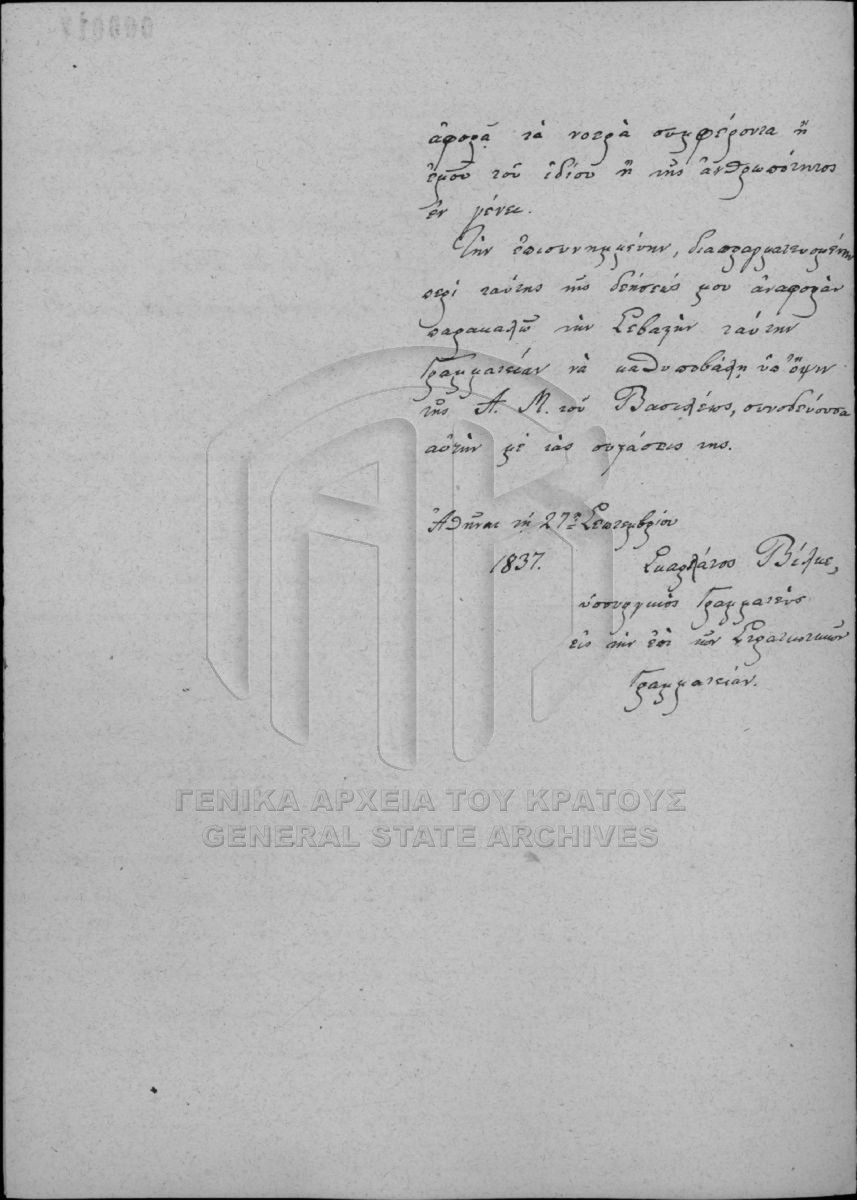 ἀφορᾷ τὰ νοερὰ συμφέροντα ἢ
ἐμοῦ τοῦ ἰδίου ἢ τῆς ἀνθρωπότητος
ἐν γένει.
Τὴν ἐπισυνημμένην, διαπραγματευομένην
περὶ ταύτης τῆς δεήσεώς μου ἀναφορὰν
παρακαλῶ τὴν Σεβαστὴν ταύτην
Γραμματείαν νὰ καθυποβάλῃ ὑπ' ὄψιν
τῆς Α. Μ. τοῦ Βασιλέως, συνοδεύουσα
αὐτὴν μὲ τὰς συστάσεις της.
Ἀθῆναι τῇ 27ῃ Σεπτεμβρίου
1837.
Σκαρλάτος Βύζας,
ὑπουργικὸς Γραμματεὺς
εἰς τὴν ἐπὶ τῶν Στρατιωτικῶν
Γραμματείαν.
ΓΕΝΙΚΑ ΑΡΧΕΙΑ ΤΟΥ ΚΡΑΤΟΥΣ
GENERAL STATE ARCHIVES